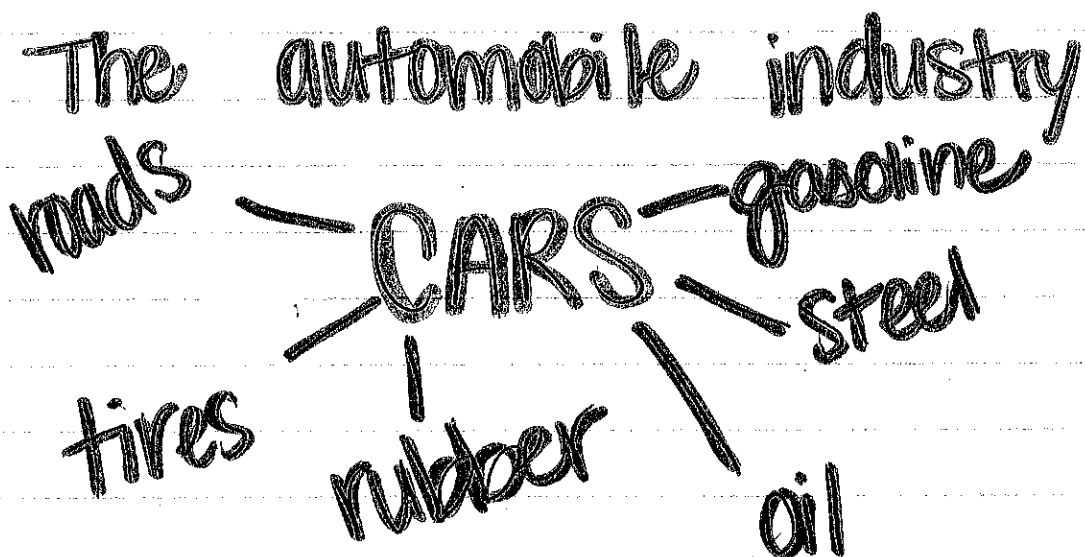 The automobile industry
roads
gasoline
CARS
steel
tires
rubber
oil